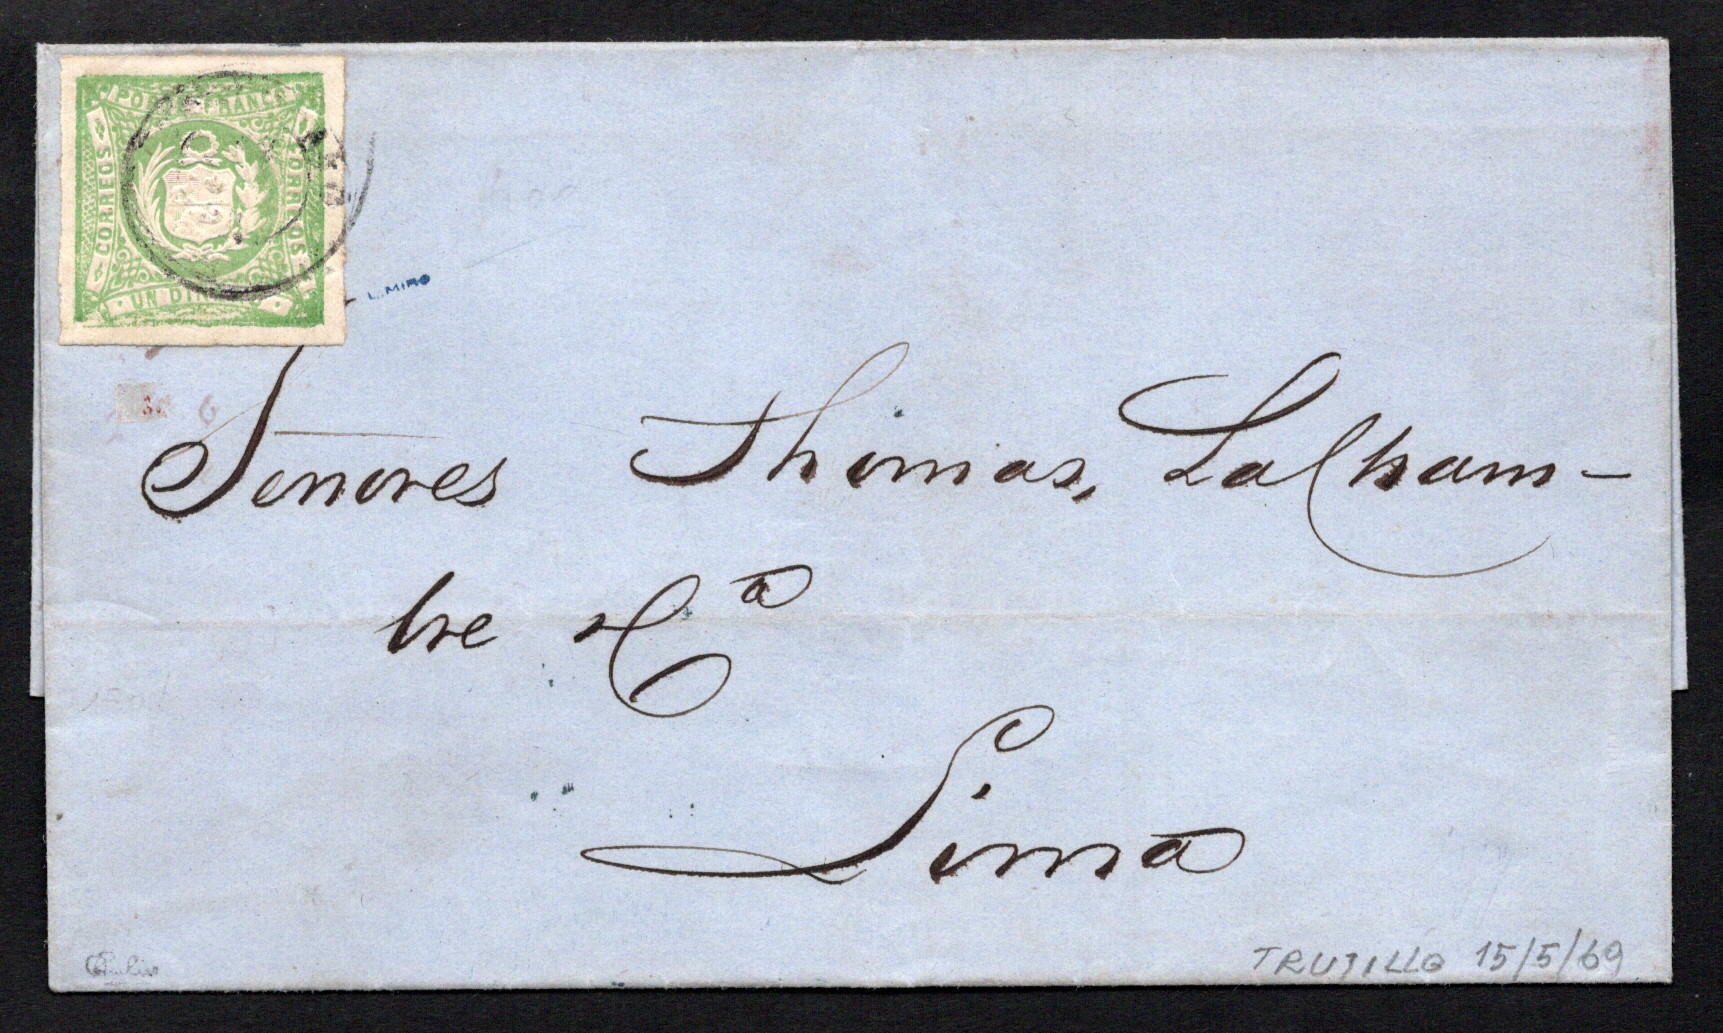 PORTE FRANCO
CORREOS
CORREOS
UN DIN
L. MIRO
6
Señores Thomas, Lalham-
bre & Cª
Lima
TRUJILLO 15/5/69